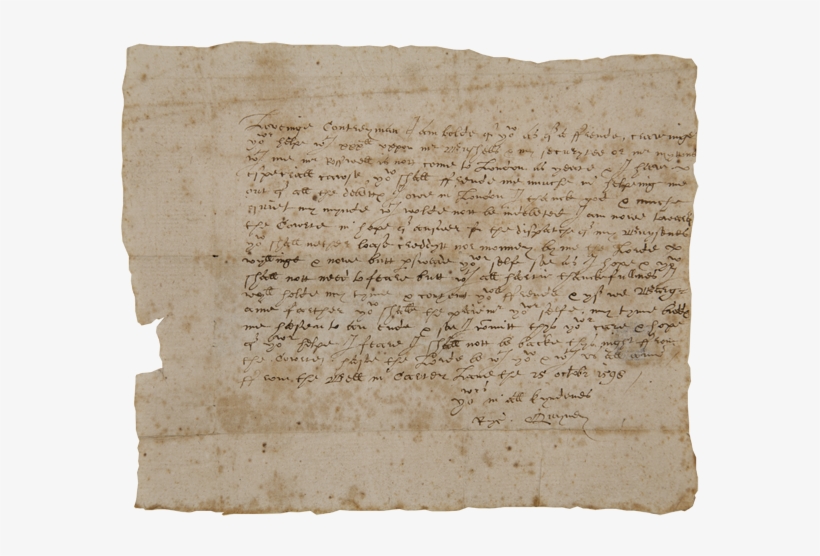 Loveinge Contreyman I am bolde of yow as of a ffrende, craveinge
yowr helpe wth xxxll vppon mr Bushells & my securytee or mr myttons
wth me mr Rosswell is nott come to London as yeate & I have
especiall cawse yow shall ffrende me muche in helpeing me
out of all the debettes I owe in London I thancke god & muche
quiet my mynde wch wolde nott be indebeted I am nowe towardes
the Cowrte in hope of answer for the dispatche of my Buysenes
yow shall nether loase creddytt nor monney by me the Lorde
wyllinge & nowe butt pswade yowr selfe soe as I hope & yow
shall nott need to feare butt wth all hartie thanckefullnes I
wyll holde my tyme & content yowr ffrende & yf we Barg
aine farther yow shall be the paiemr yowr selfe. my tyme biddes
me hasten to an ende & soe I comitt thys yowr care & hope
of yowr helpe I feare I shall nott be backe thys night ffrom
the Cowrte. haste the Lorde be wth yow & wth vs all amen
ffrom the Bell in Carter Lane the 25 octobr 1598
yowrs in all kyndenes
Ryc. Quyney